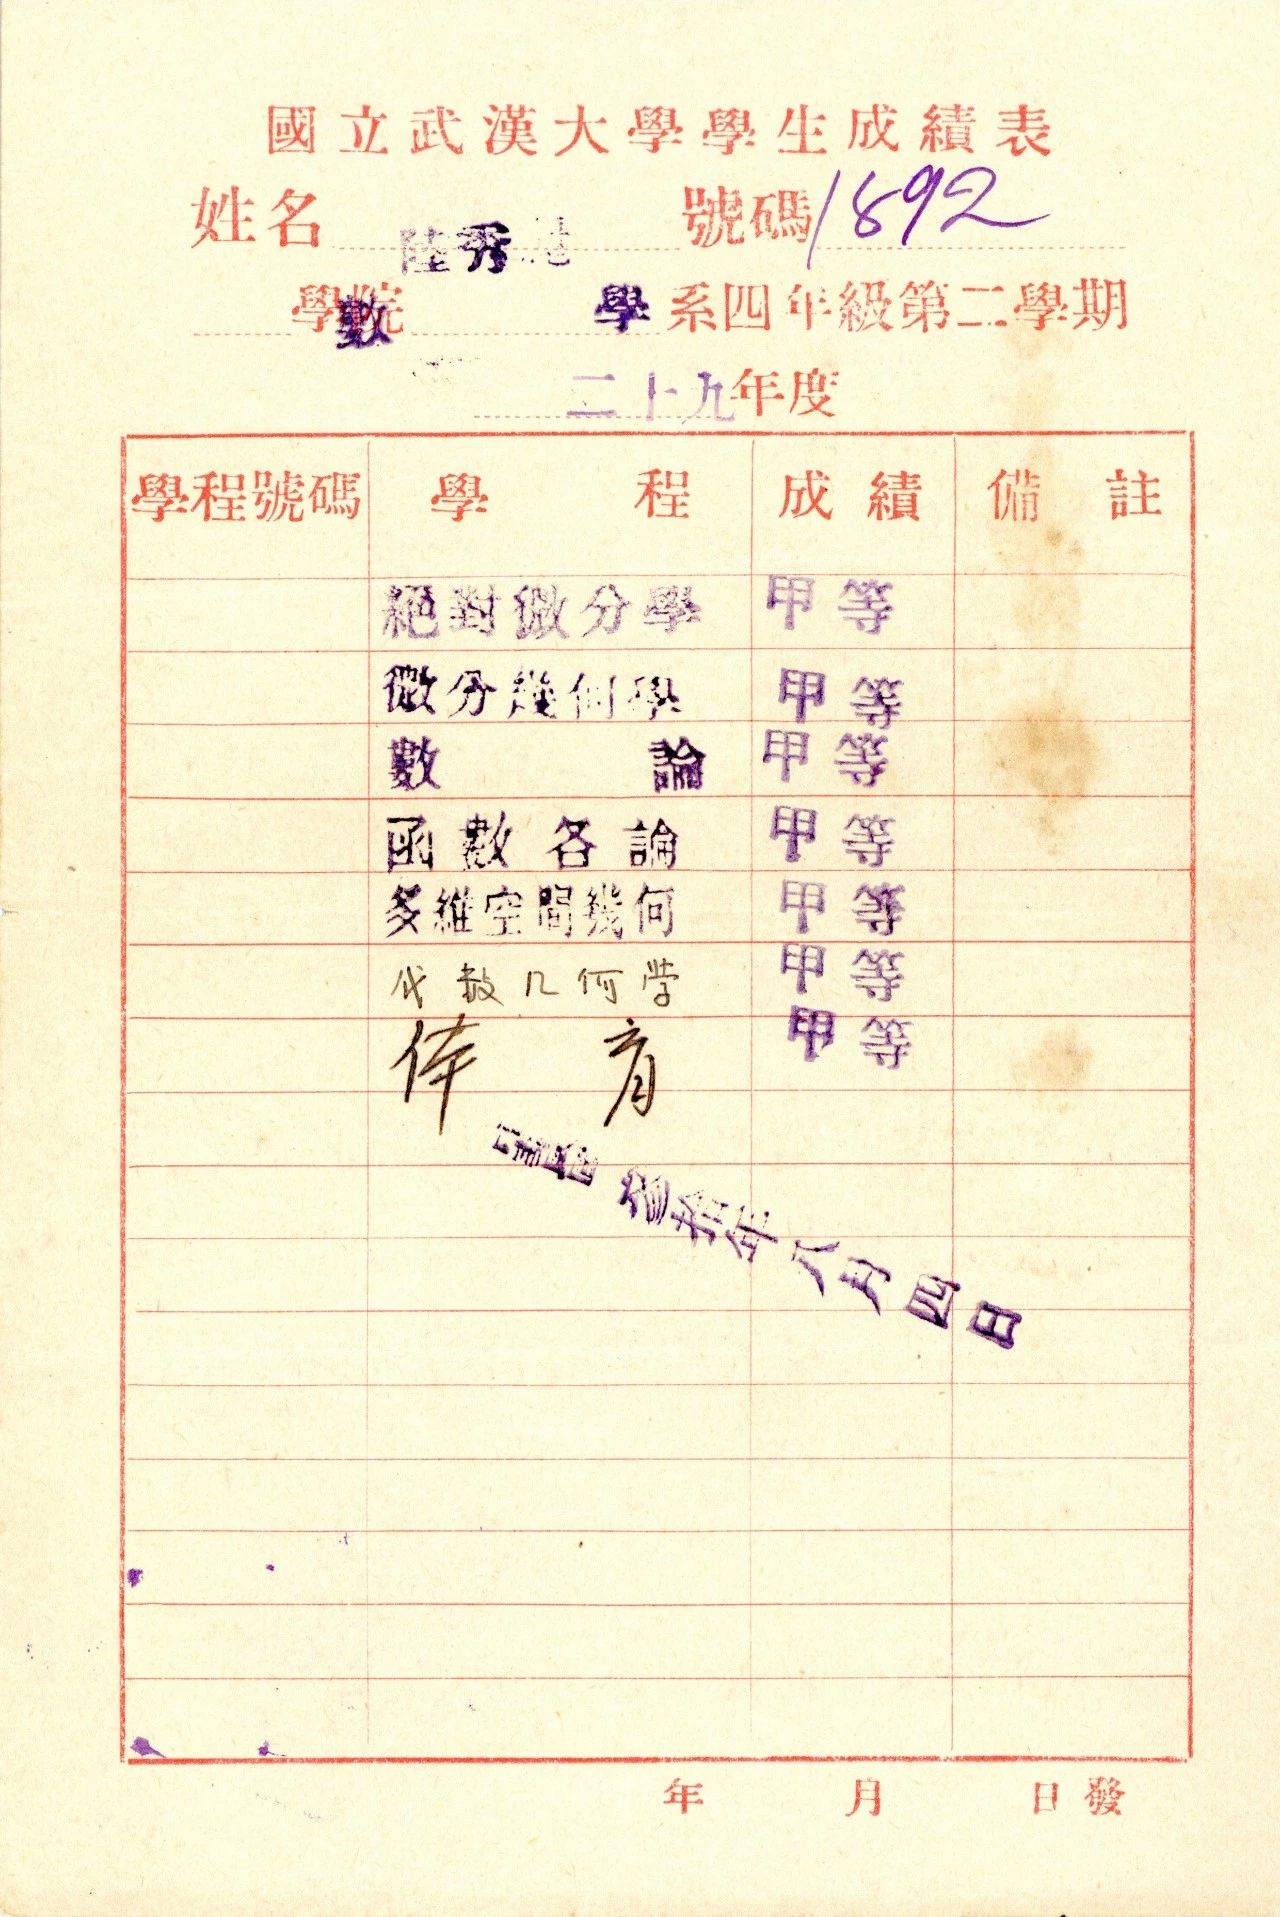 國立武漢大學學生成績表
姓名 陸秀 號碼1892
學院 數學系四年級第二學期
二十九年度
學程號碼 學程 成績 備註
絕對微分學 甲等
微分幾何學 甲等
數論 甲等
函數各論 甲等
多維空間幾何 甲等
代数几何学 甲等
体育 甲等
中華民國叁拾年八月四日
年 月 日發